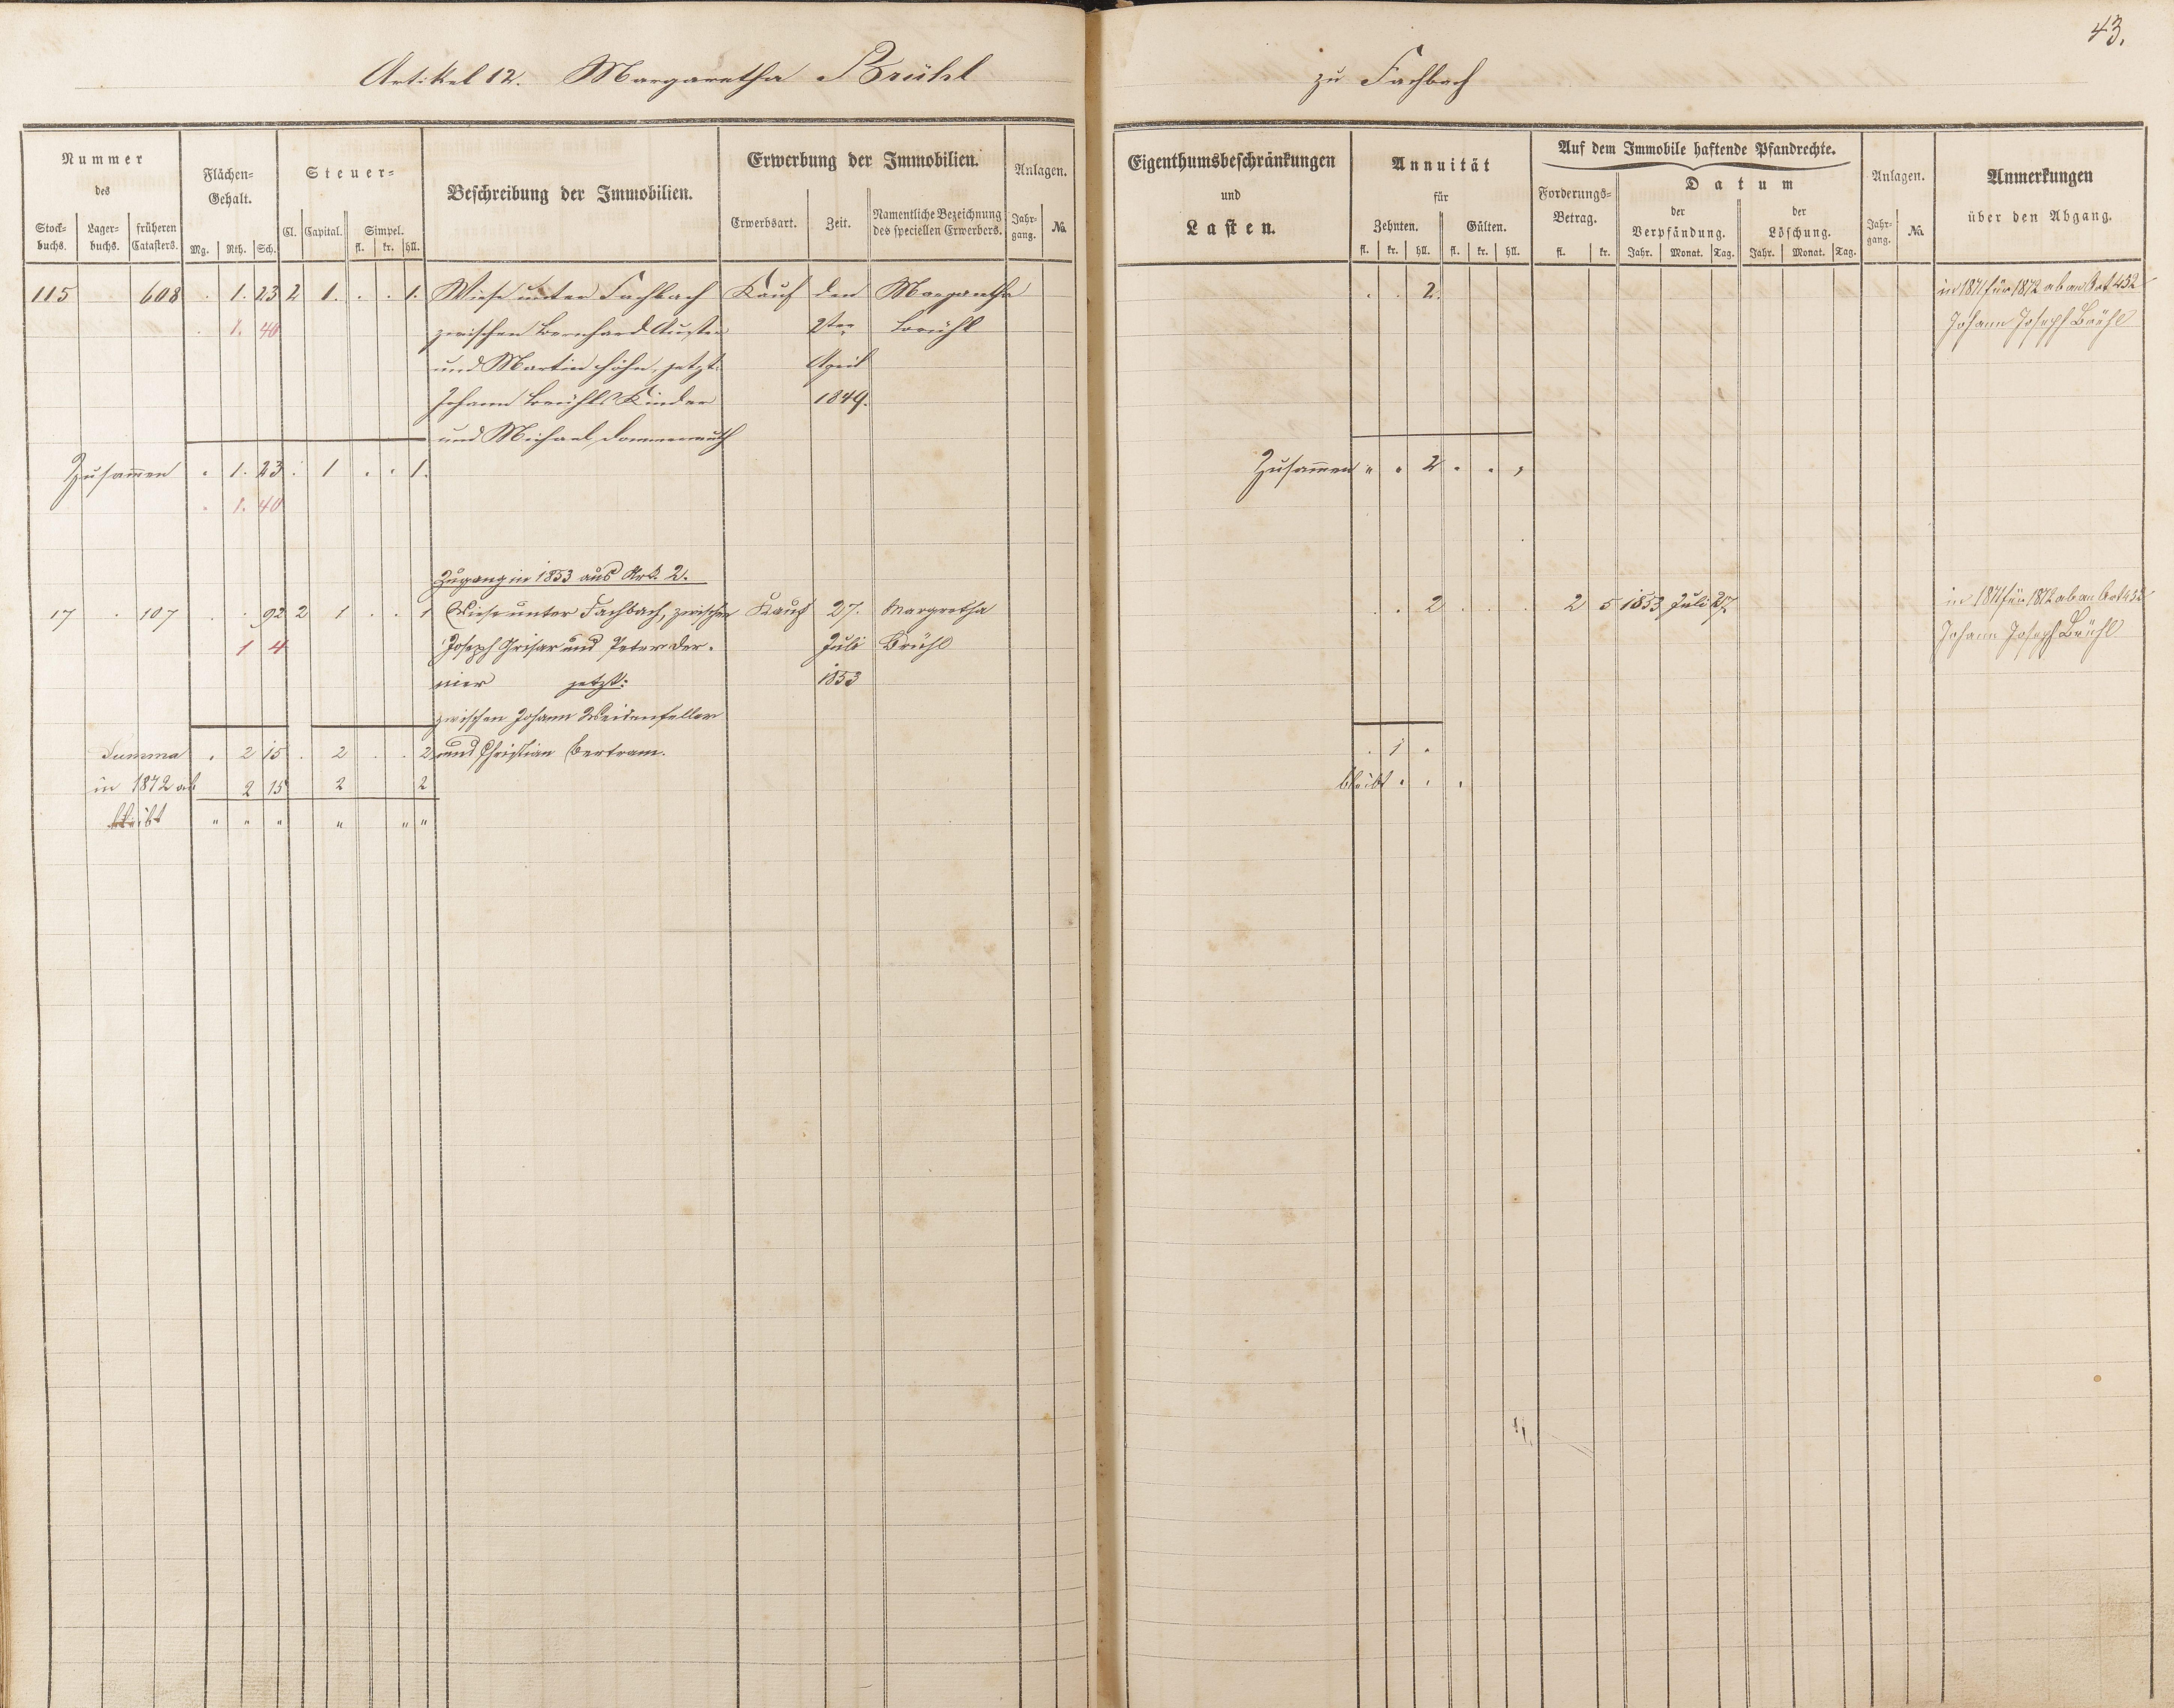 43.
Artikel 12. Margaretha Brühl zu Fachbach
Nummer des
Stock-buchs. Lager-buchs. früheren Catasters.
Flächen-Gehalt.
Mg. Rth. Sch.
Steuer-
Cl. Capital. Simpel.
fl. kr. hll.
Beschreibung der Immobilien.
Erwerbung der Immobilien.
Erwerbsart. Zeit. Namentliche Bezeichnung des speciellen Erwerbers.
Anlagen.
Jahr-gang. No.
Eigenthumsbeschränkungen
und
Lasten.
Annuität
für
Zehnten. Gülten.
fl. kr. hll. fl. kr. hll.
Auf dem Immobile haftende Pfandrechte.
Forderungs-Betrag.
fl. kr.
Datum
der Verpfändung. der Löschung.
Jahr. Monat. Tag. Jahr. Monat. Tag.
Anlagen.
Jahr-gang. No.
Anmerkungen
über den Abgang.
115 608 . 1. 23 2 1. . . 1. Wiese unter Fachbach Kauf den Margaretha . . 2. in 1871 für 1872 ab an Art 432
. 1. 40 zwischen Bernhard 2ten Brühl Johann Joseph Brühl
und Martin Höhn, jetzt: April
Johann Brühls Kinder 1849.
und Michael Dommermuth
Zusam̄en . 1. 23 . 1 . . 1. Zusam̄en " . 2 . . ,
. 1. 40
Zugang in 1853 aus Art. 2.
17 . 107 . . 92 2 1 . . 1 Wiese unter Fachbach, zwischen Kauf 27. Margretha . . 2 . . . 2 5 1853 Juli 27 in 1871 für 1872 ab an Art 432
1 4 Joseph Grisar und Peter Der- Juli Brühl Johann Joseph Brühl
nier jetzt: 1853
zwischen Johann Weidenfeller
Summa . 2 15 . 2 . . 2 und Christian Bertram. . 1 .
in 1872 ab 2 15 2 2 bleibt . . .
bleibt " " " " " "